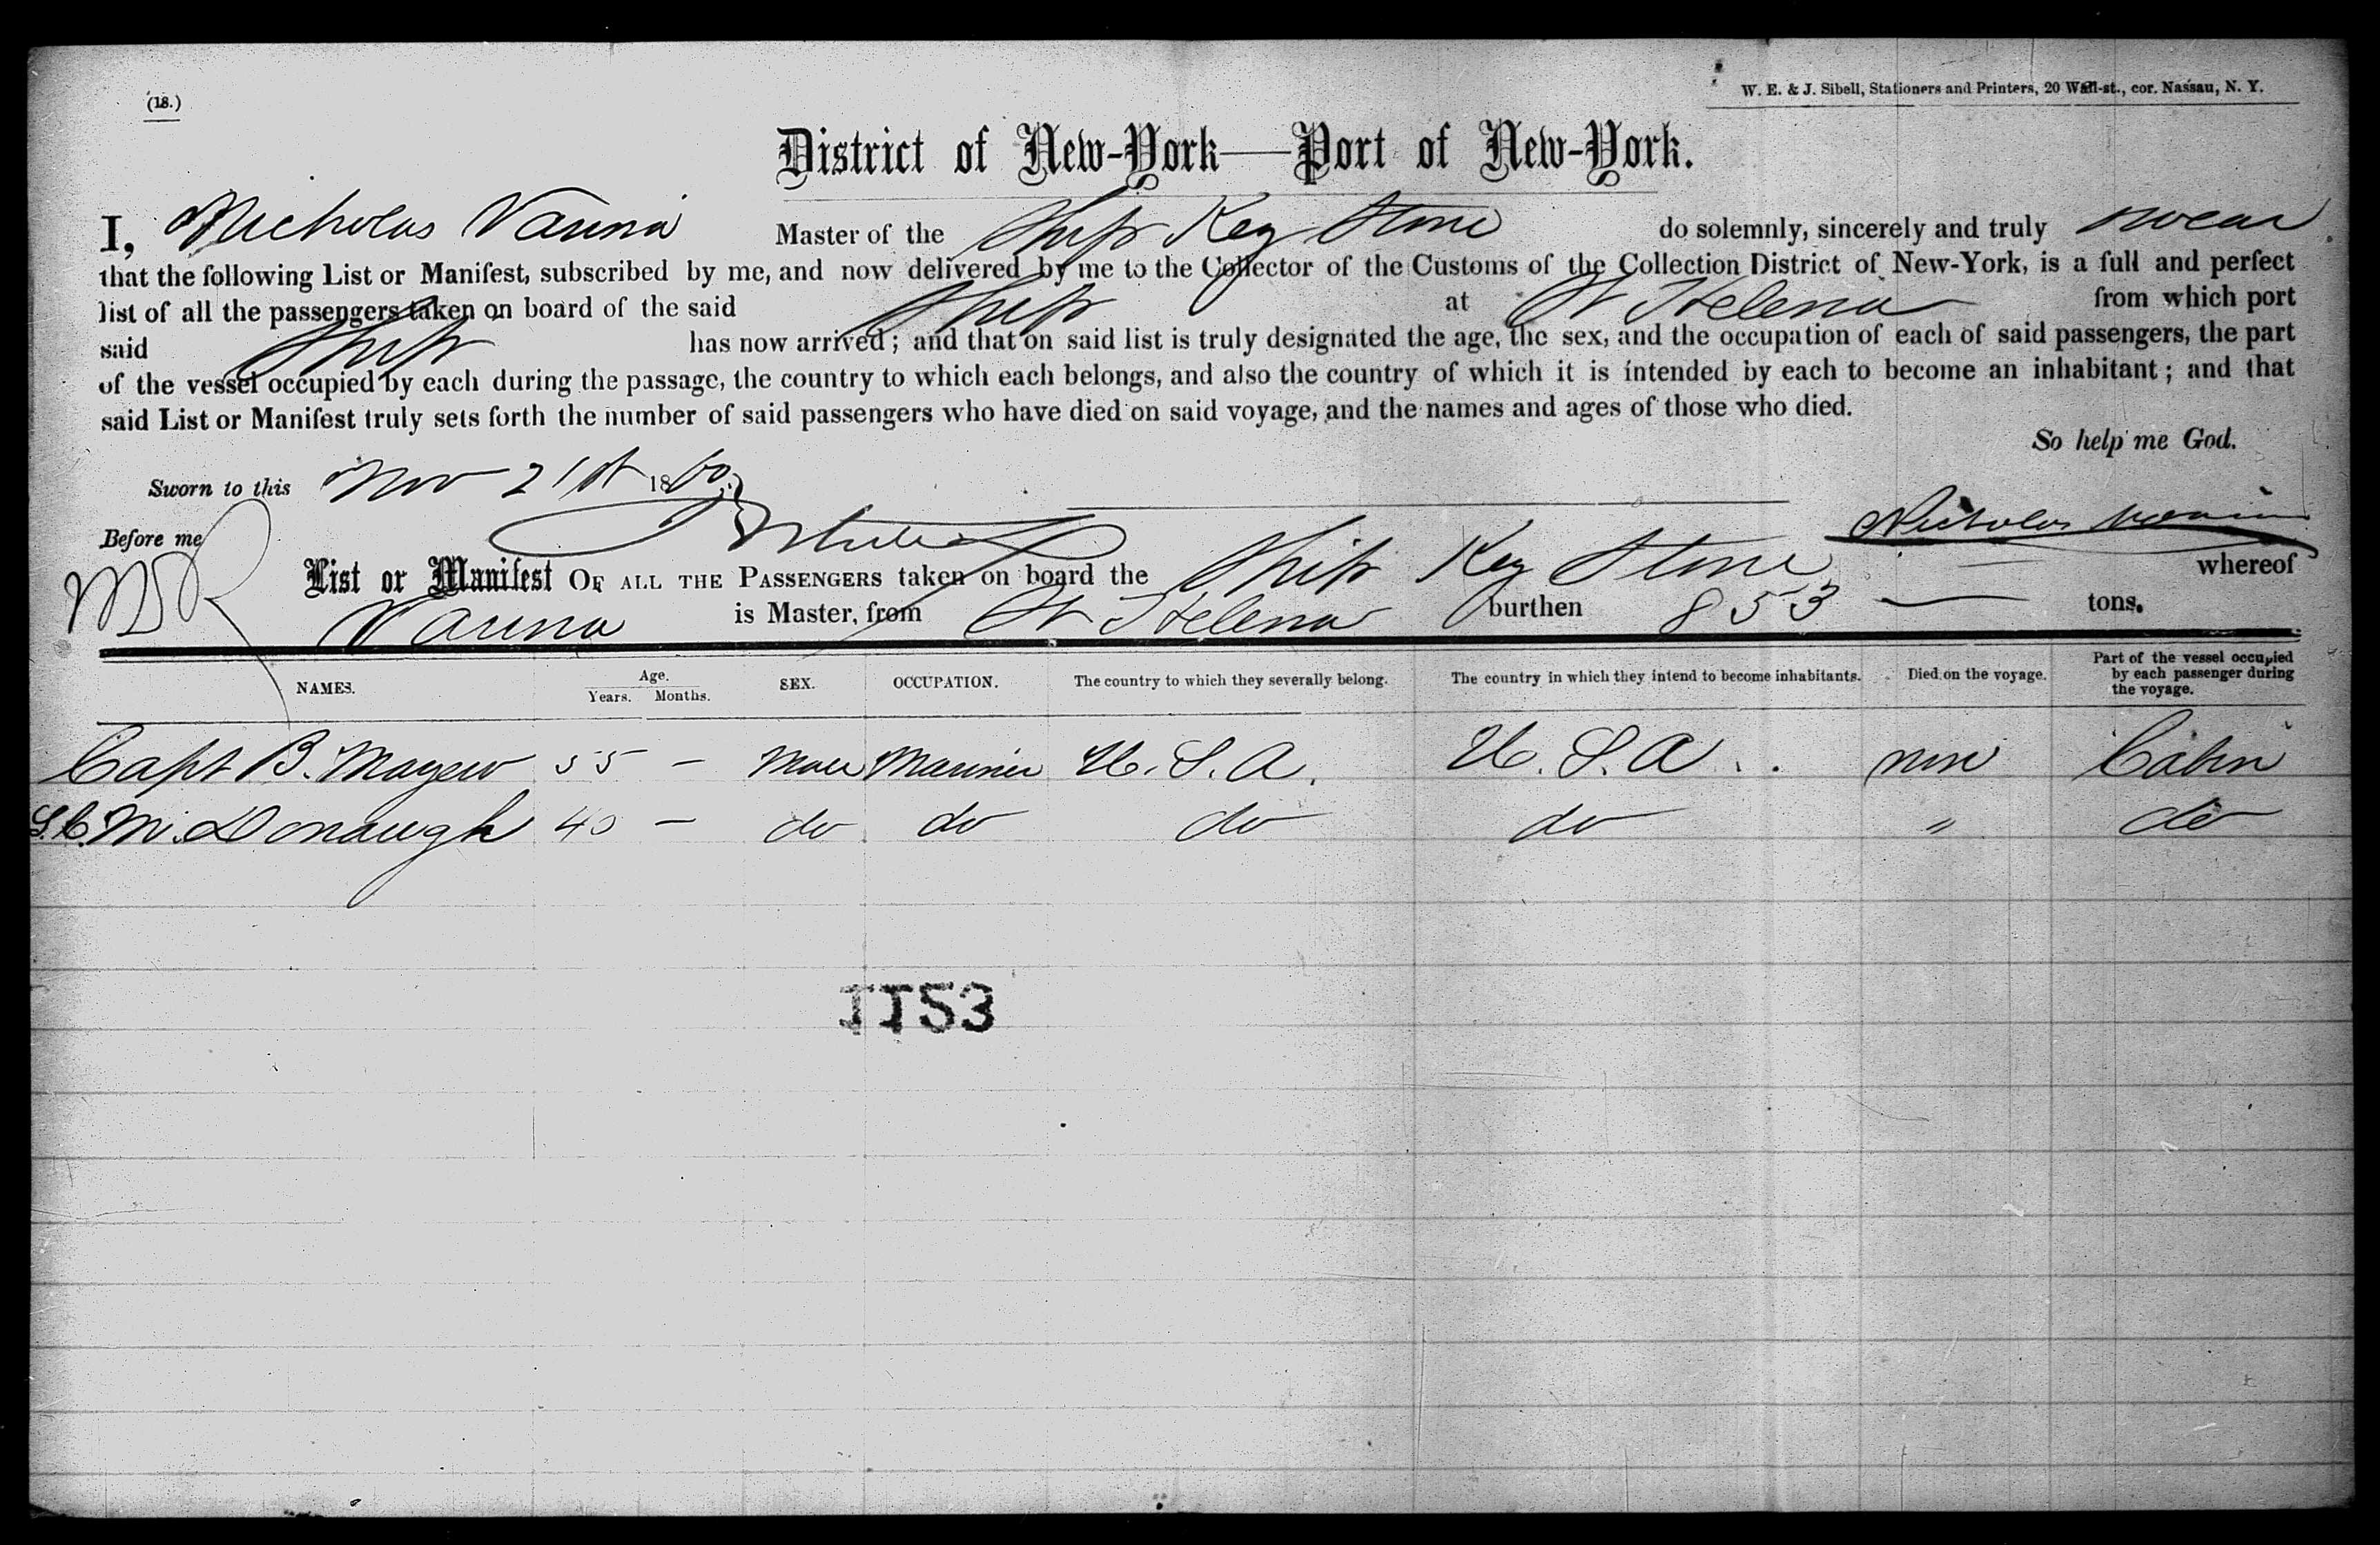 (18.)
W. E. & J. Sibell, Stationers and Printers, 20 Wall-st., cor. Nassau, N. Y.
District of New-York—Port of New-York.
I, Nicholas Vanna Master of the Ship Key Stone do solemnly, sincerely and truly swear
that the following List or Manifest, subscribed by me, and now delivered by me to the Collector of the Customs of the Collection District of New-York, is a full and perfect
list of all the passengers taken on board of the said Ship at St Helena from which port
said Ship has now arrived; and that on said list is truly designated the age, the sex, and the occupation of each of said passengers, the part
of the vessel occupied by each during the passage, the country to which each belongs, and also the country of which it is intended by each to become an inhabitant; and that
said List or Manifest truly sets forth the number of said passengers who have died on said voyage, and the names and ages of those who died.
So help me God.
Sworn to this Nov 21st 1860
Before me Nicholas
List or Manifest OF ALL THE PASSENGERS taken on board the Ship Key Stone — whereof
Vanna is Master, from St Helena burthen 853 — tons.
NAMES. Age. Years. Months. SEX. OCCUPATION. The country to which they severally belong. The country in which they intend to become inhabitants. Died on the voyage. Part of the vessel occupied by each passenger during the voyage.
Capt B. Mayew 55 – Male Mariner U. S. A. U. S. A. none Cabin
S. C. Mc.Donaugh 40 – do do do do " do
1153